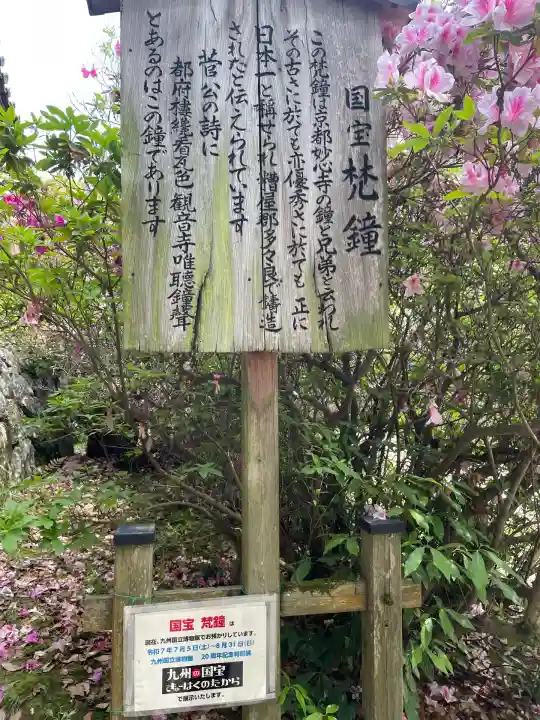 国宝梵鐘
この梵鐘は京都妙心寺の鐘と兄弟と云われ
その古さに於ても亦優秀さに於ても 正に
日本一と称せられ 糟屋郡多々良で鋳造
されたと伝えられています
菅公の詩に
都府楼纔看瓦色 観音寺唯聴鐘聲
とあるのはこの鐘であります
国宝 梵鐘 は
現在、九州国立博物館でお預かりしています。
令和7年7月5日(土)~8月31日(日)
九州国立博物館 20周年記念特別展
九州の国宝
きゅーはくのたから
で展示いたします。